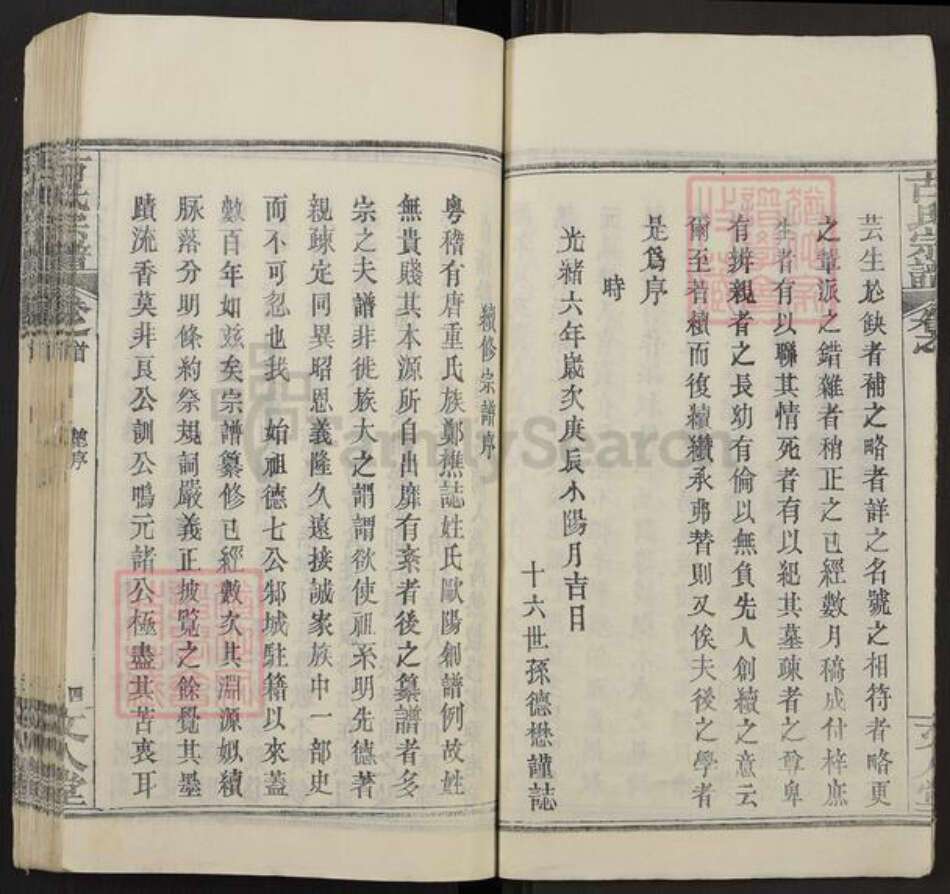 芸生尨缺者補之略者詳之名號之相符者略更
之輩派之錯雜者稍正之已經數月稿成付梓庶
生者有以聯其情死者有以紀其墓疎者之尊卑
有辨親者之長幼有倫以無負先人創續之意云
爾至若續而復續纘承弗替則又俟夫後之學者
是爲序
時
光緒六年歲次庚辰小陽月吉日
十六世孫德懋謹誌
續修宗譜序
粵稽有唐重氏族鄭樵誌姓氏歐陽創譜例故姓
無貴賤其本源所自出靡有紊者後之纂譜者多
宗之夫譜非徙族大之謂謂欲使祖系明先德著
親疎定同異昭恩義隆久遠接誠家族中一部史
而不可忽也我 始祖德七公邾城駐籍以來蓋
數百年如玆矣宗譜纂修已經數次其淵源姒續
脉落分明條約祭規詞嚴義正披覽之餘覺其墨
蹟流香莫非良公訓公鳴元諸公極盡其苦衷耳
宗譜
卷之首
譜序
四
文人堂
FamilySearch